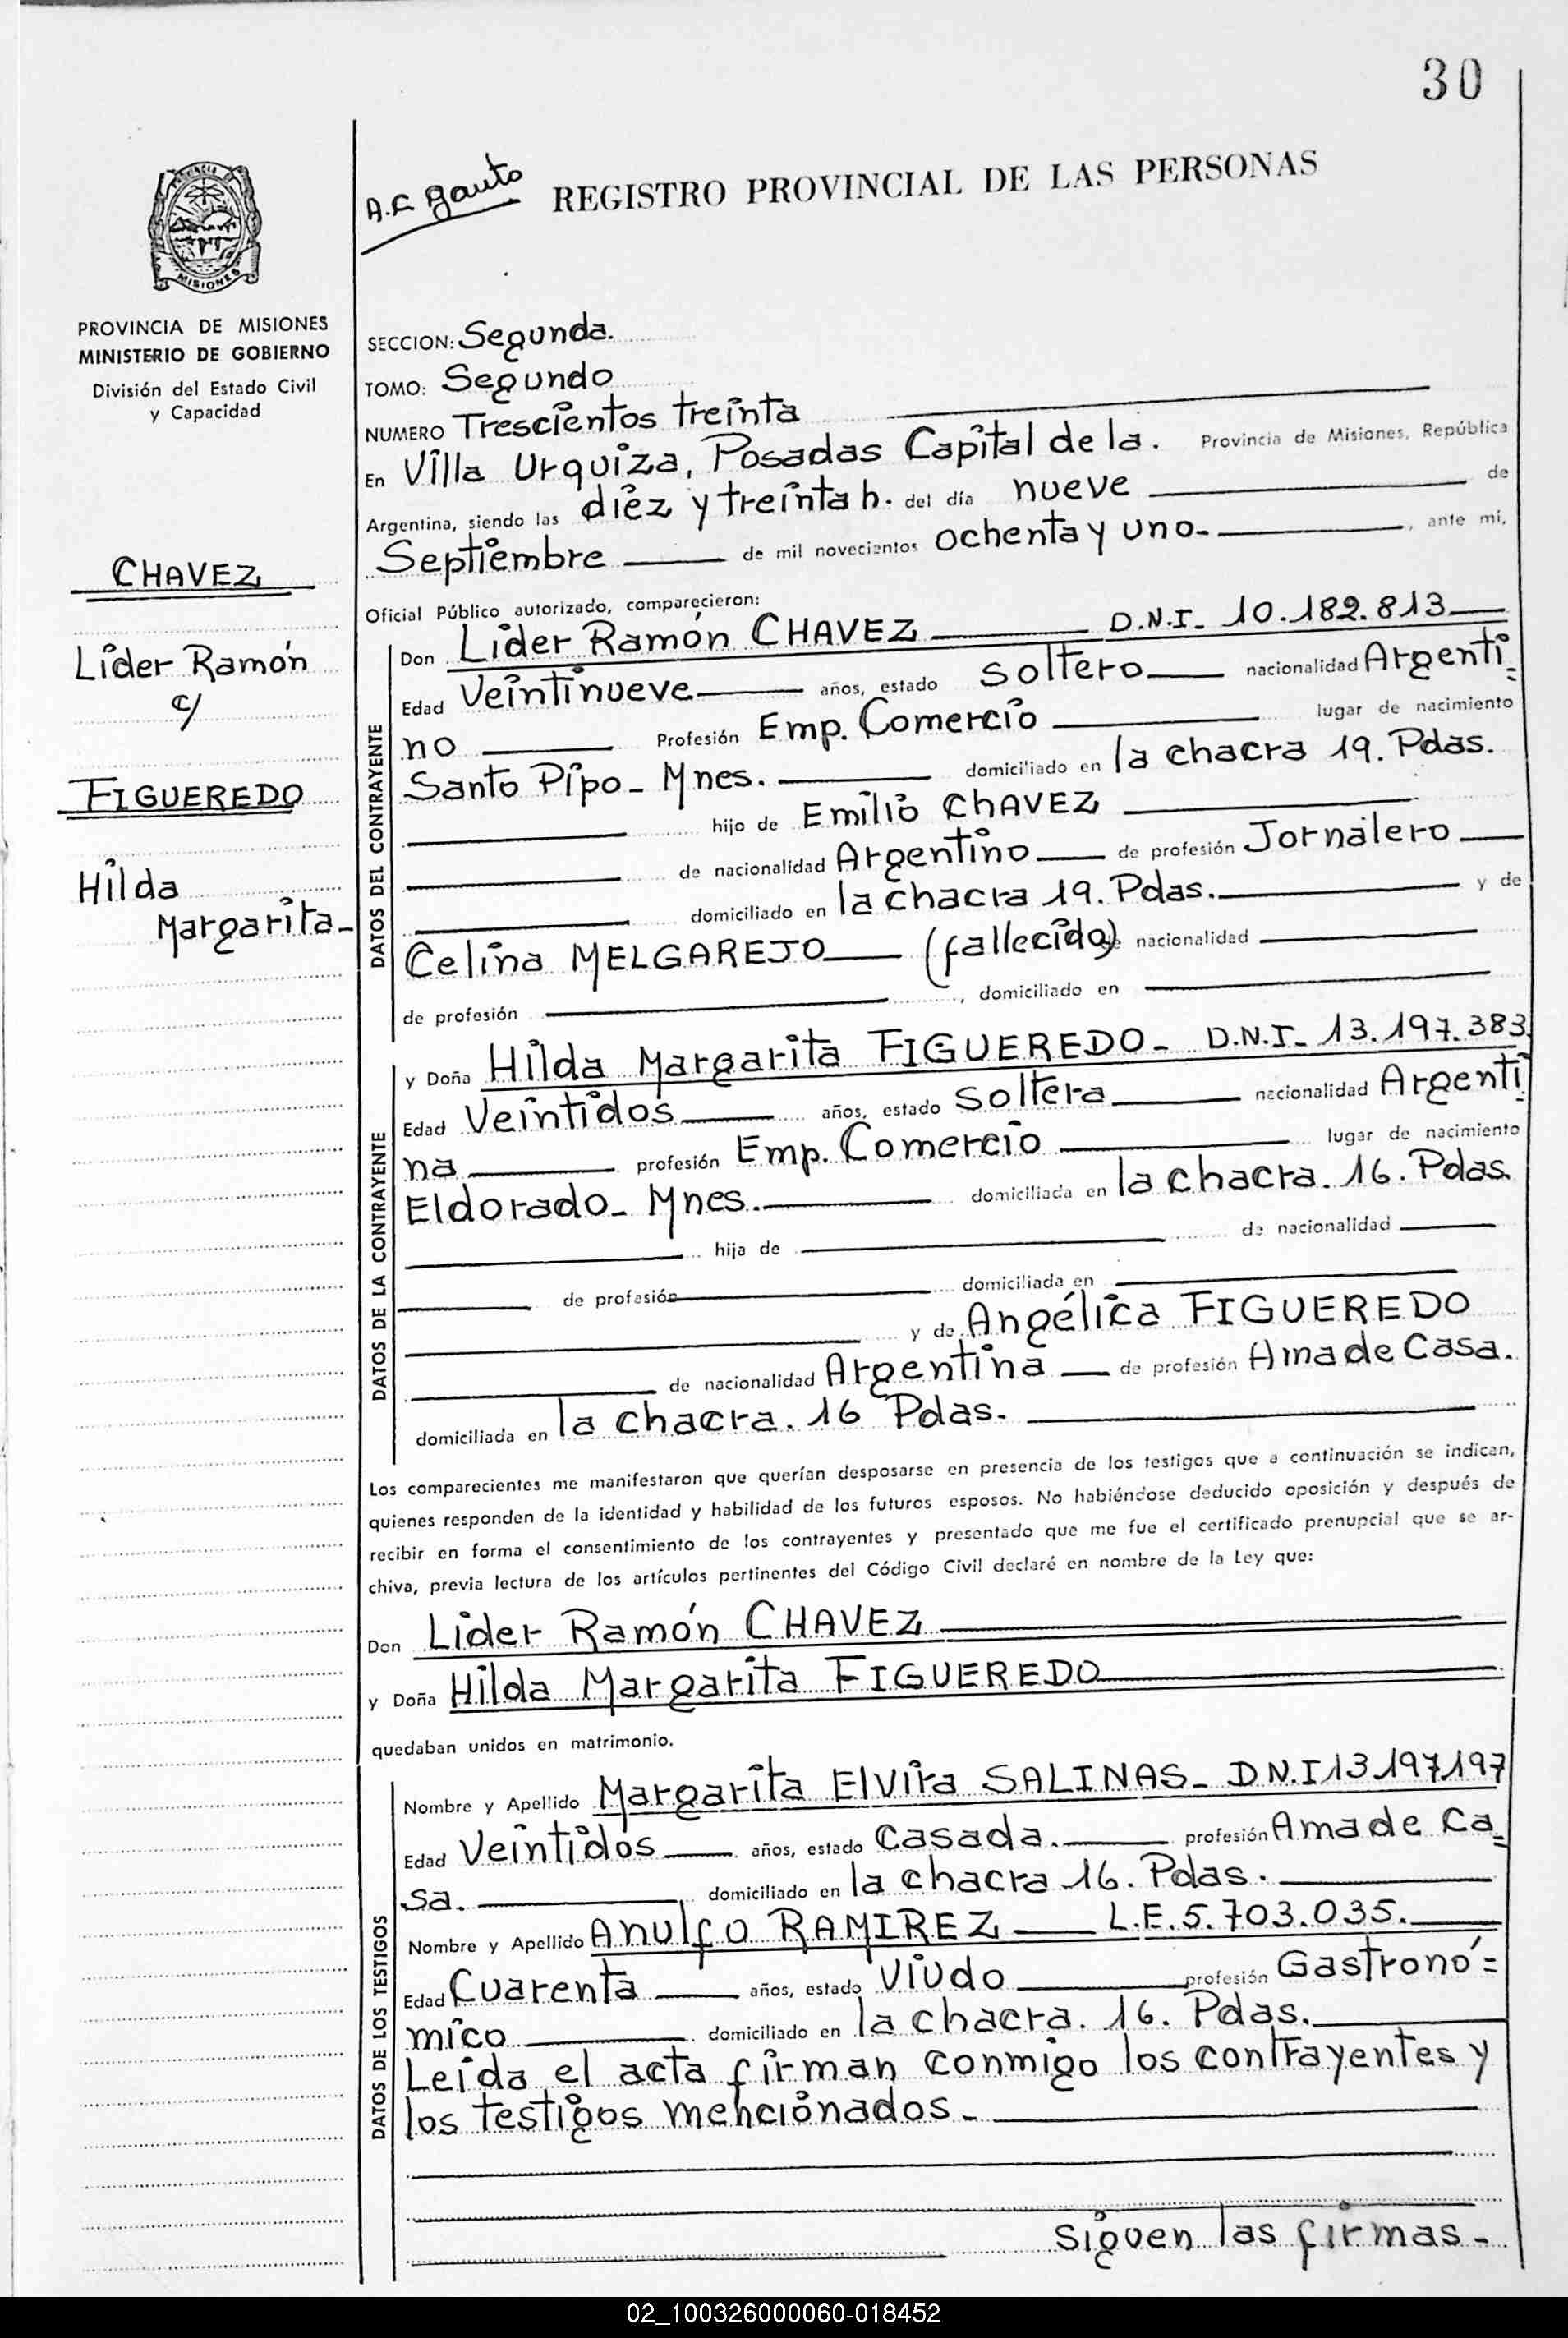 30
A.F. Gauto
REGISTRO PROVINCIAL DE LAS PERSONAS
MISIONES
PROVINCIA DE MISIONES
MINISTERIO DE GOBIERNO
División del Estado Civil
y Capacidad
CHAVEZ
Líder Ramón
c/
FIGUEREDO
Hilda
Margarita-
SECCION: Segunda.
TOMO: Segundo
NUMERO Trescientos treinta
En Villa Urquiza, Posadas Capital de la. Provincia de Misiones, República
Argentina, siendo las diez y treinta h. del día nueve de
Septiembre de mil novecientos ochenta y uno- , ante mi,
Oficial Público autorizado, comparecieron:
DATOS DEL CONTRAYENTE
Don Líder Ramón CHAVEZ D.N.I- 10.182.813
Edad Veintinueve años, estado Soltero nacionalidad Argenti-
no Profesión Emp. Comercio lugar de nacimiento
Santo Pipo- Mnes. domiciliado en la chacra 19. Pdas.
hijo de Emilio ChAVEZ
de nacionalidad Argentino de profesión Jornalero
domiciliado en la chacra 19. Pdas. y de
Celina MELGAREJO (fallecida) de nacionalidad
de profesión , domiciliado en
DATOS DE LA CONTRAYENTE
y Doña Hilda Margarita FIGUEREDO- D.N.I- 13.197.383
Edad Veintidos años, estado Soltera nacionalidad Argenti-
na profesión Emp. Comercio lugar de nacimiento
Eldorado- Mnes. domiciliada en la chacra. 16. Pdas.
hija de de nacionalidad
de profesión domiciliada en
y de Angélica FIGUEREDO
de nacionalidad Argentina de profesión Ama de Casa.
domiciliada en la chacra. 16 Pdas.
Los comparecientes me manifestaron que querían desposarse en presencia de los testigos que a continuación se indican,
quienes responden de la identidad y habilidad de los futuros esposos. No habiéndose deducido oposición y después de
recibir en forma el consentimiento de los contrayentes y presentado que me fue el certificado prenupcial que se ar-
chiva, previa lectura de los artículos pertinentes del Código Civil declaré en nombre de la Ley que:
Don Lider Ramón CHAVEZ
y Doña Hilda Margarita FIGUEREDO
quedaban unidos en matrimonio.
DATOS DE LOS TESTIGOS
Nombre y Apellido Margarita Elvira SALINAS- D.N.I 13.197.197
Edad Veintidos años, estado Casada. profesión Ama de Ca-
sa. domiciliado en la chacra 16. Pdas.
Nombre y Apellido Anulfo RAMIREZ L.E. 5.703.035.
Edad Cuarenta años, estado Viudo profesión Gastronó=
mico domiciliado en la chacra. 16. Pdas.
Leida el acta firman conmigo los contrayentes y
los testigos mencionados-
siguen las firmas-
02_100326000060-018452